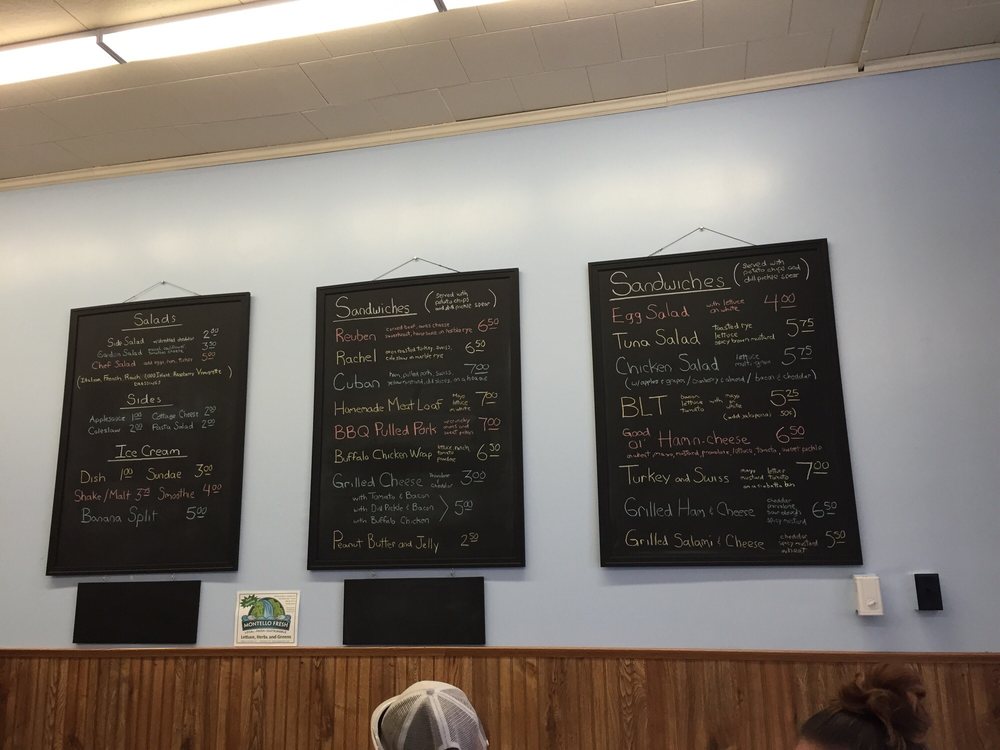 Salads
Side Salad w/shredded cheddar 2.00
Garden Salad 3.50
Chef Salad add eggs, ham, turkey 5.00
(Italian, French, Ranch, 1,000 Island, Raspberry Vinaigrette
Dressings)
Sides
Applesauce 1.00 Cottage Cheese 2.00
Coleslaw 2.00 Pasta Salad 2.00
Ice Cream
Dish 1.00 Sundae 3.00
Shake/Malt 3.75 Smoothie 4.00
Banana Split 5.00
Sandwiches (served with
potato chips
and dill pickle spear)
Reuben corned beef, swiss cheese
sauerkraut, 6.50
Rachel 6.50
Cuban ham, pulled pork, swiss,
yellow mustard, dill slices, on a hoagie 7.00
Homemade Meat Loaf Mayo
lettuce
on white 7.00
BBQ Pulled Pork 7.00
Buffalo Chicken Wrap lettuce, ranch,
tomato 6.50
Grilled Cheese Provolone &
cheddar 3.00
with Tomato & Bacon
with Dill Pickle & Bacon 5.00
with Buffalo Chicken
Peanut Butter and Jelly 2.50
Sandwiches (served with
potato chips and
dill pickle spear)
Egg Salad with lettuce
on white 4.00
Tuna Salad toasted rye
lettuce
spicy brown mustard 5.75
Chicken Salad lettuce
multi-grain 5.75
(w/apples & grapes / cranberry & almond / bacon & cheddar)
BLT bacon
lettuce
tomato with mayo
on
white 5.25
(add jalapenos 50¢)
Good
Ol' Ham n. cheese 6.50
on wheat, mayo, mustard, provolone, lettuce, tomato, sweet pickle
Turkey and Swiss mayo lettuce
mustard tomato
on a ciabatta bun 7.00
Grilled Ham & Cheese cheddar
provolone
sour dough
spicy mustard 6.50
Grilled Salami & Cheese cheddar
spicy mustard
wheat 5.50
MONTELLO FRESH
Lettuce, Herbs and Greens